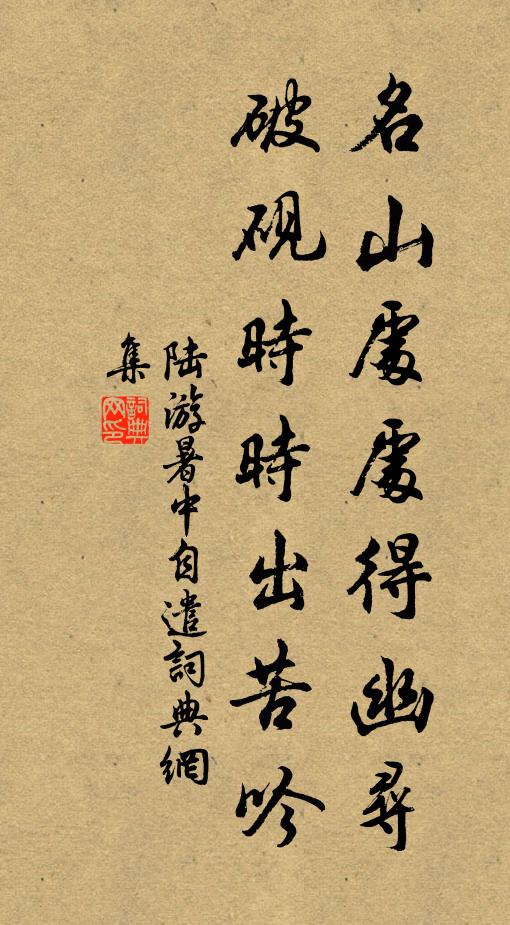 名山處處得幽尋
破硯時時出苦吟
陆游暑中自遣詞典網
集
詞典
网印